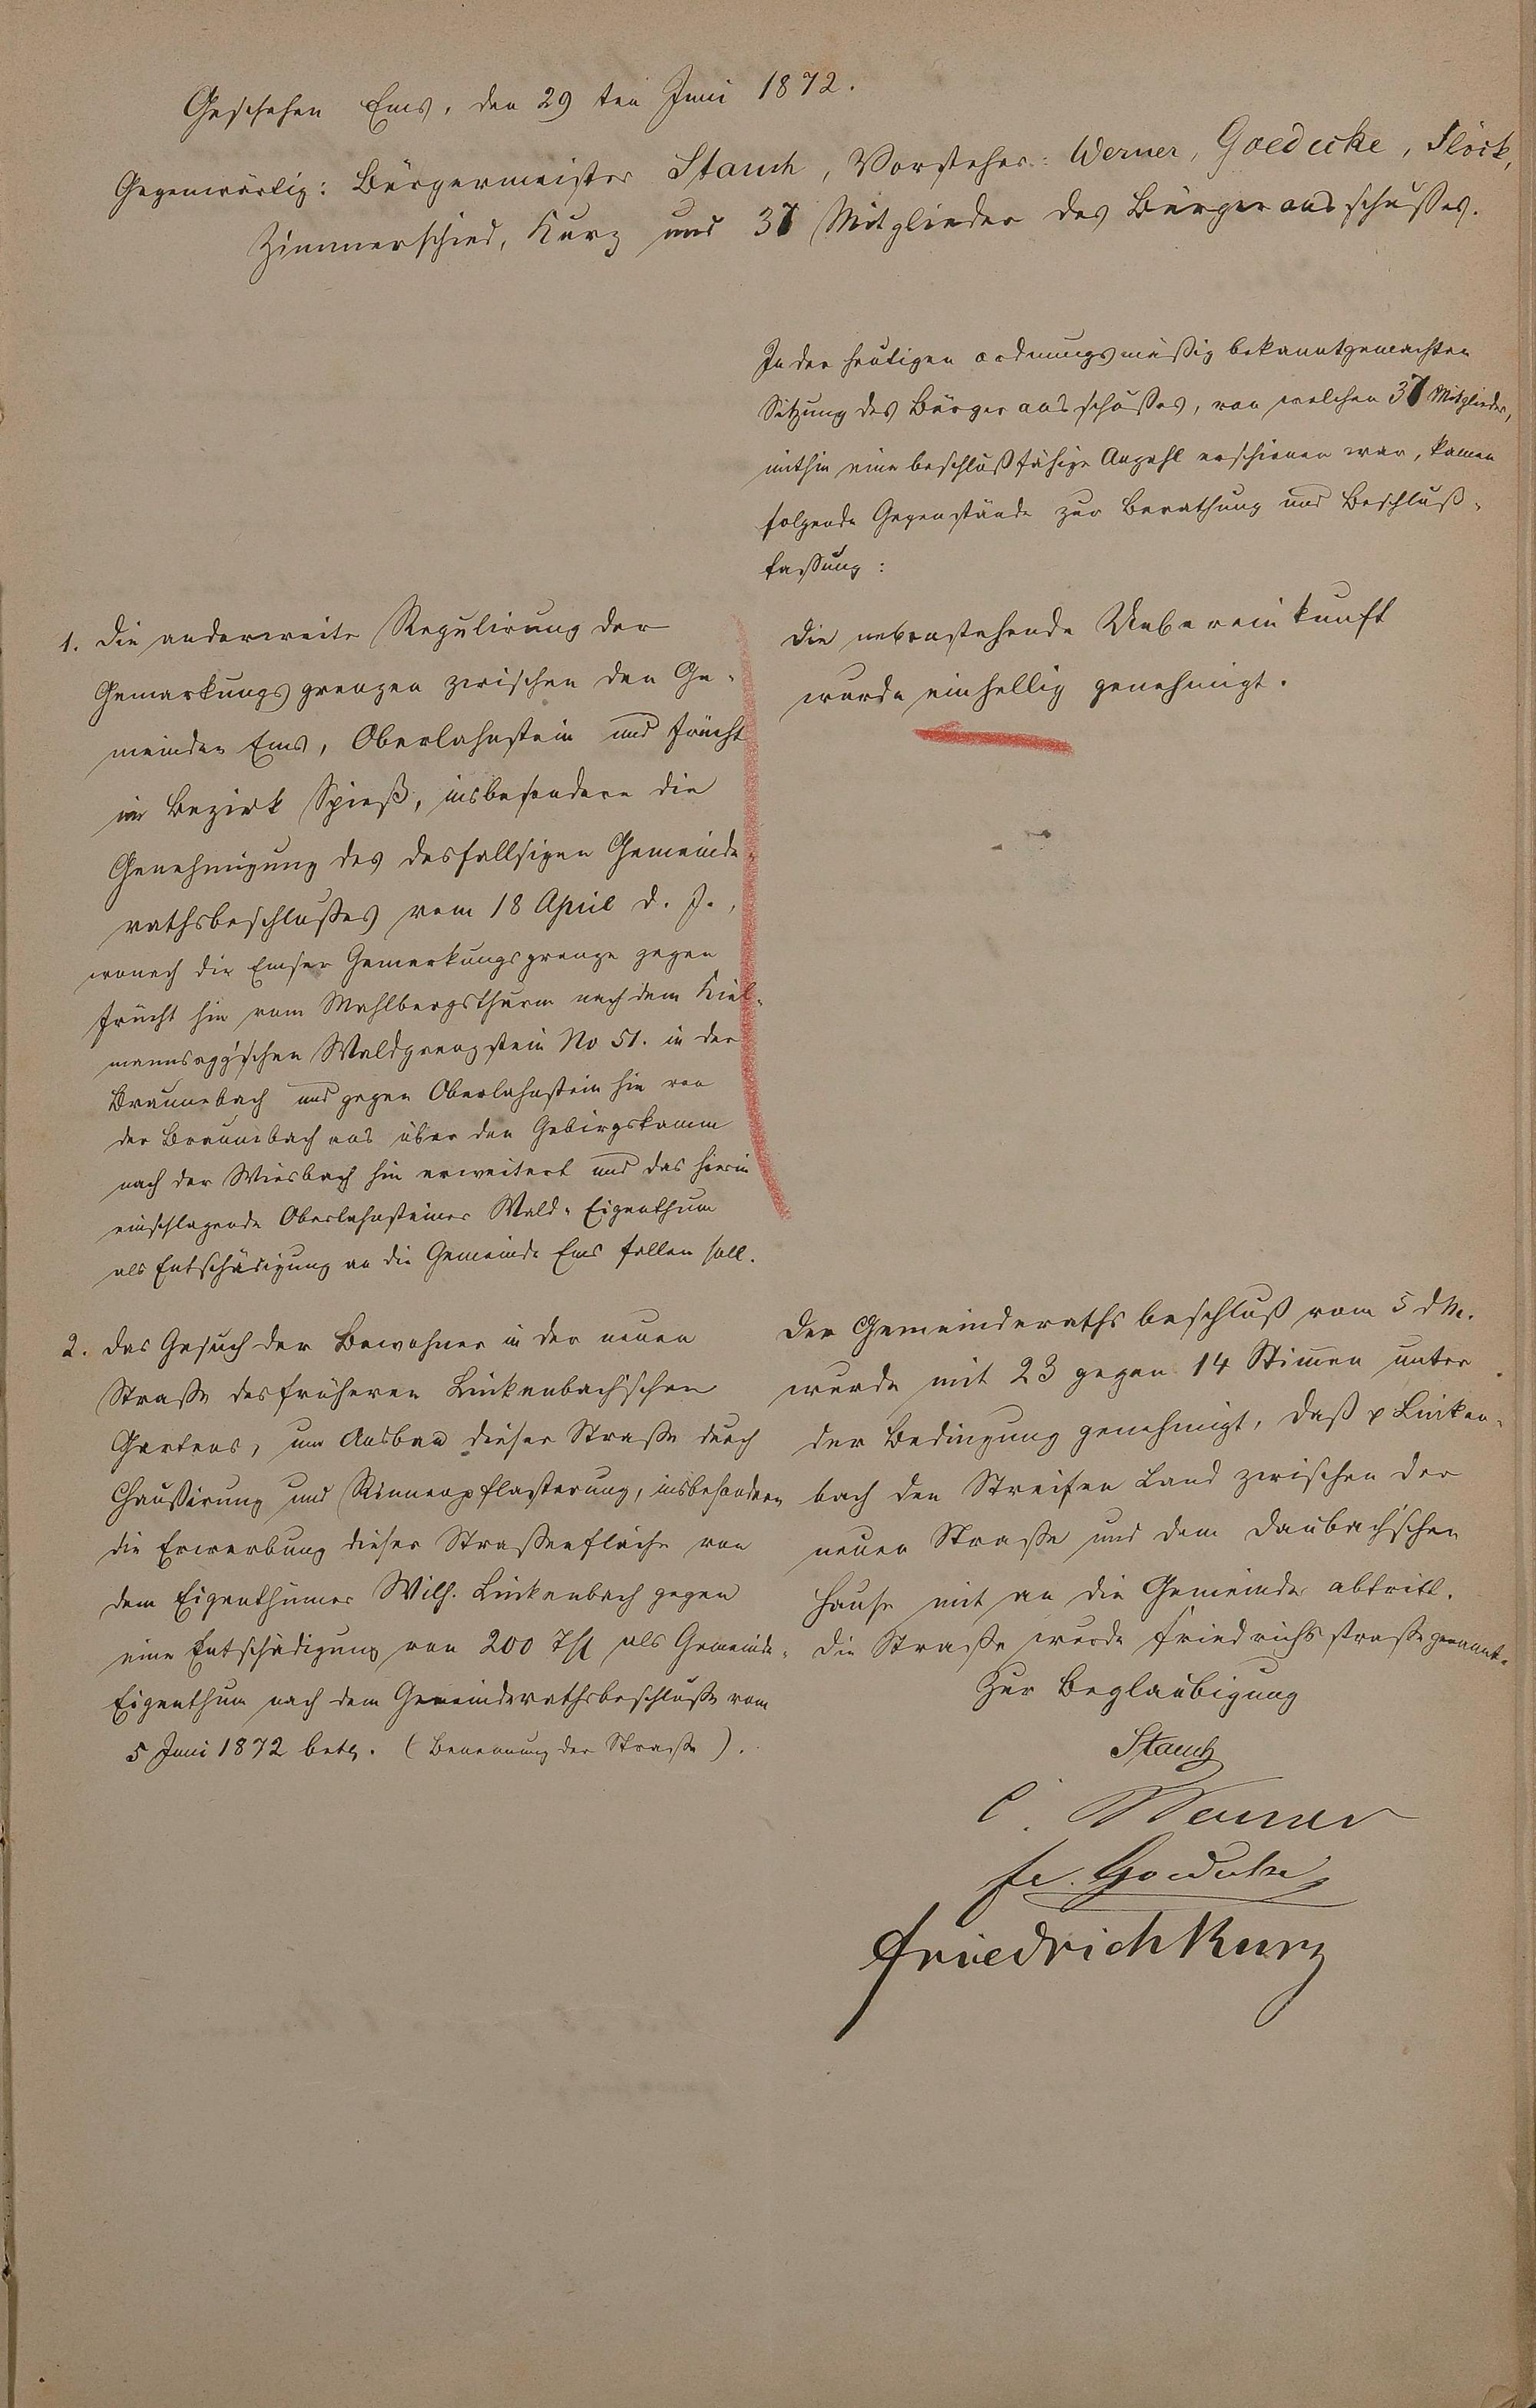 Geschehen Ems, den 29ten Juni 1872.
Gegenwärtig: Bürgermeister Stauch, Vorsteher: Werner, Goedecke, Flöck,
Zimmerschied, Kurz und 37 Mitglieder des Bürgerausschusses.
In der heutigen ordnungsmäßig bekanntgemachten
Sitzung des Bürgerausschusses, von welchen 37 Mitglieder,
mithin eine beschlußfähige Anzahl erschienen war, kamen
folgende Gegenstände zur Berathung und Beschluß-
fassung:
1. Die anderweite Regulirung der
Gemarkungsgrenzen zwischen den Ge-
meinden Ems, Oberlahnstein und Frücht
im Bezirk Spieß, insbesondere die
Genehmigung des desfallsigen Gemeinde-
rathsbeschlusses vom 18 April d. J.,
wonach die Emser Gemarkungsgrenze gegen
Frücht hin vom Mahlbergsthurm nach dem Kiel-
mannsegg'schen Waldgrenzstein No 51. in der
Braunebach und gegen Oberlahnstein hin von
der Braunebach aus über den Gebirgskamm
nach der Wiesbach hin erweitert und das hierin
einschlagende Oberlahnsteiner Wald-Eigenthum
als Entschädigung an die Gemeinde Ems fallen soll.
Die nebenstehende Uebereinkunft
wurde einhellig genehmigt.
2. Das Gesuch der Bewohner in der neuen
Straße des früheren Linkenbach'schen
Gartens, um Ausbau dieser Straße durch
Chaussirung und Rinnenpflasterung, insbesondere
die Erwerbung dieser Straßenfläche von
dem Eigenthümer Wilh. Linkenbach gegen
eine Entschädigung von 200 Thl als Gemeinde-
Eigenthum nach dem Gemeinderathsbeschlusse vom
5 Juni 1872 betr. (Benennung der Straße).
Der Gemeinderathsbeschluß vom 5 d M.
wurde mit 23 gegen 14 Stimen unter
der Bedingung genehmigt, daß p Linken-
bach den Streifen Land zwischen der
neuen Straße und dem Daubach'schen
Hause mit an die Gemeinde abtritt.
Die Straße wurde Friedrichsstraße genannt.
Zur Beglaubigung
Stauch
C. Werner
Fr. Goedecke
Friedrich Kurz